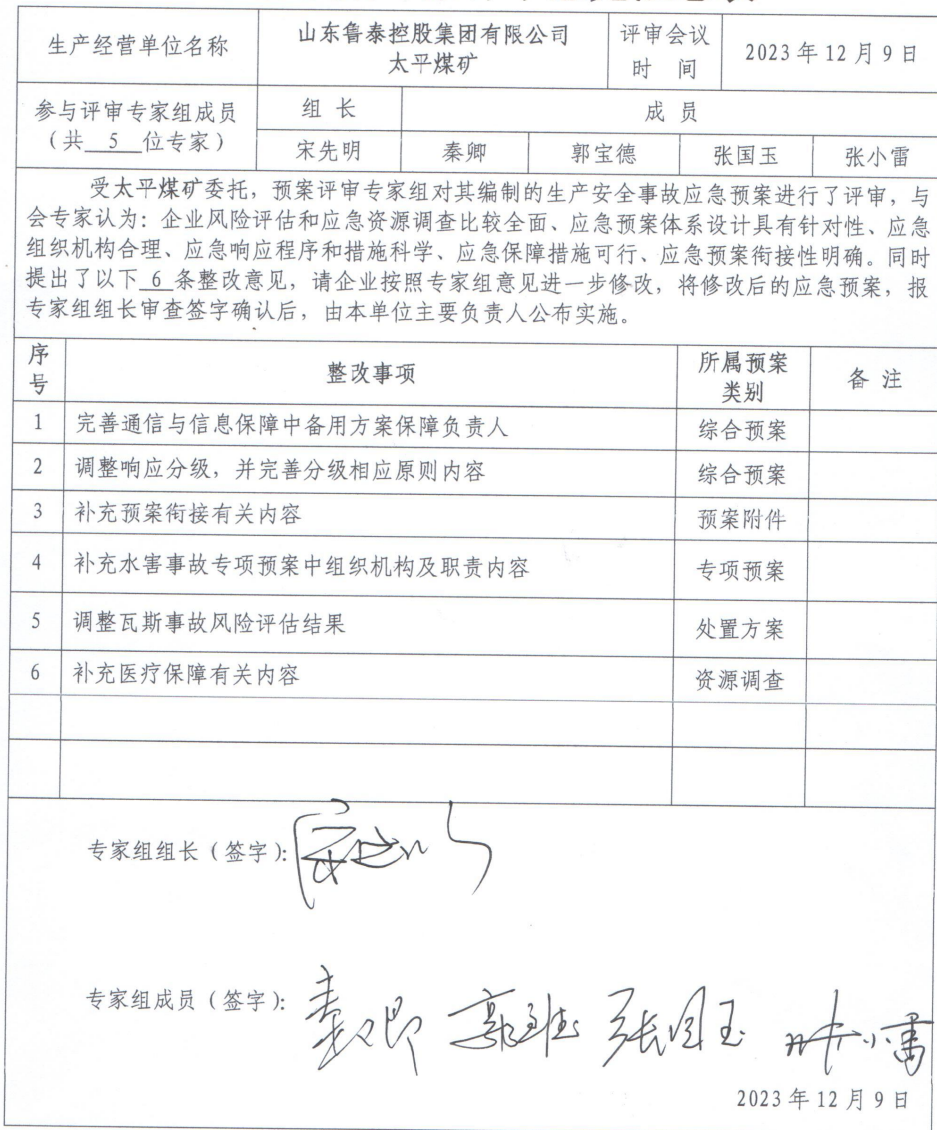 生产经营单位名称
山东鲁泰控股集团有限公司
太平煤矿
评审会议
时 间
2023 年 12 月 9 日
参与评审专家组成员
（共 5 位专家）
组 长
成 员
宋先明
秦卿
郭宝德
张国玉
张小雷
受太平煤矿委托，预案评审专家组对其编制的生产安全事故应急预案进行了评审，与
会专家认为：企业风险评估和应急资源调查比较全面、应急预案体系设计具有针对性、应急
组织机构合理、应急响应程序和措施科学、应急保障措施可行、应急预案衔接性明确。同时
提出了以下 6 条整改意见，请企业按照专家组意见进一步修改，将修改后的应急预案，报
专家组组长审查签字确认后，由本单位主要负责人公布实施。
序
号
整改事项
所属预案
类别
备 注
1 完善通信与信息保障中备用方案保障负责人 综合预案
2 调整响应分级，并完善分级相应原则内容 综合预案
3 补充预案衔接有关内容 预案附件
4 补充水害事故专项预案中组织机构及职责内容 专项预案
5 调整瓦斯事故风险评估结果 处置方案
6 补充医疗保障有关内容 资源调查
专家组组长（签字）：宋先明
专家组成员（签字）：秦卿 郭宝德 张国玉 张小雷
2023 年 12 月 9 日